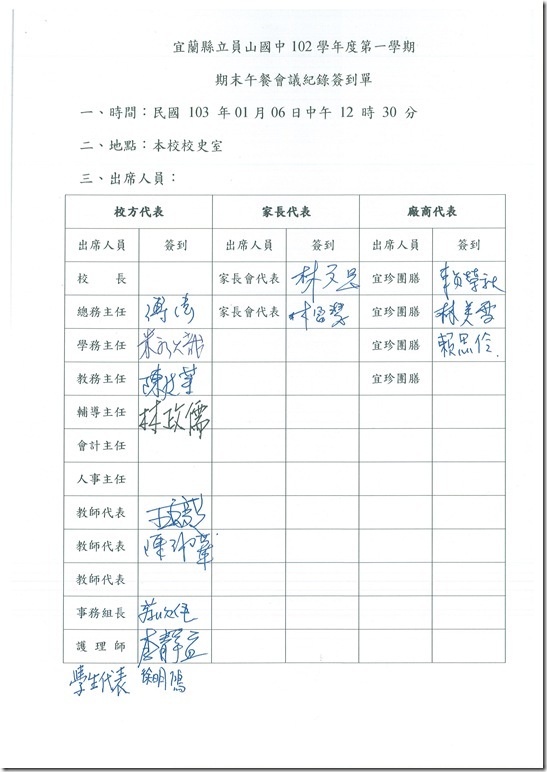 宜蘭縣立員山國中 102 學年度第一學期
期末午餐會議紀錄簽到單
一、時間：民國 103 年 01 月 06 日中午 12 時 30 分
二、地點：本校校史室
三、出席人員：
校方代表 家長代表 廠商代表
出席人員 簽到 出席人員 簽到 出席人員 簽到
校 長 家長會代表 林文 宜珍團膳 賴榮
總務主任 家長會代表 林 宜珍團膳 林美雪
學務主任 宜珍團膳 賴思伶
教務主任 陳 宜珍團膳
輔導主任 林政儒
會計主任
人事主任
教師代表
教師代表 陳
教師代表
事務組長
護理師 李靜宜
學生代表 徐明陽